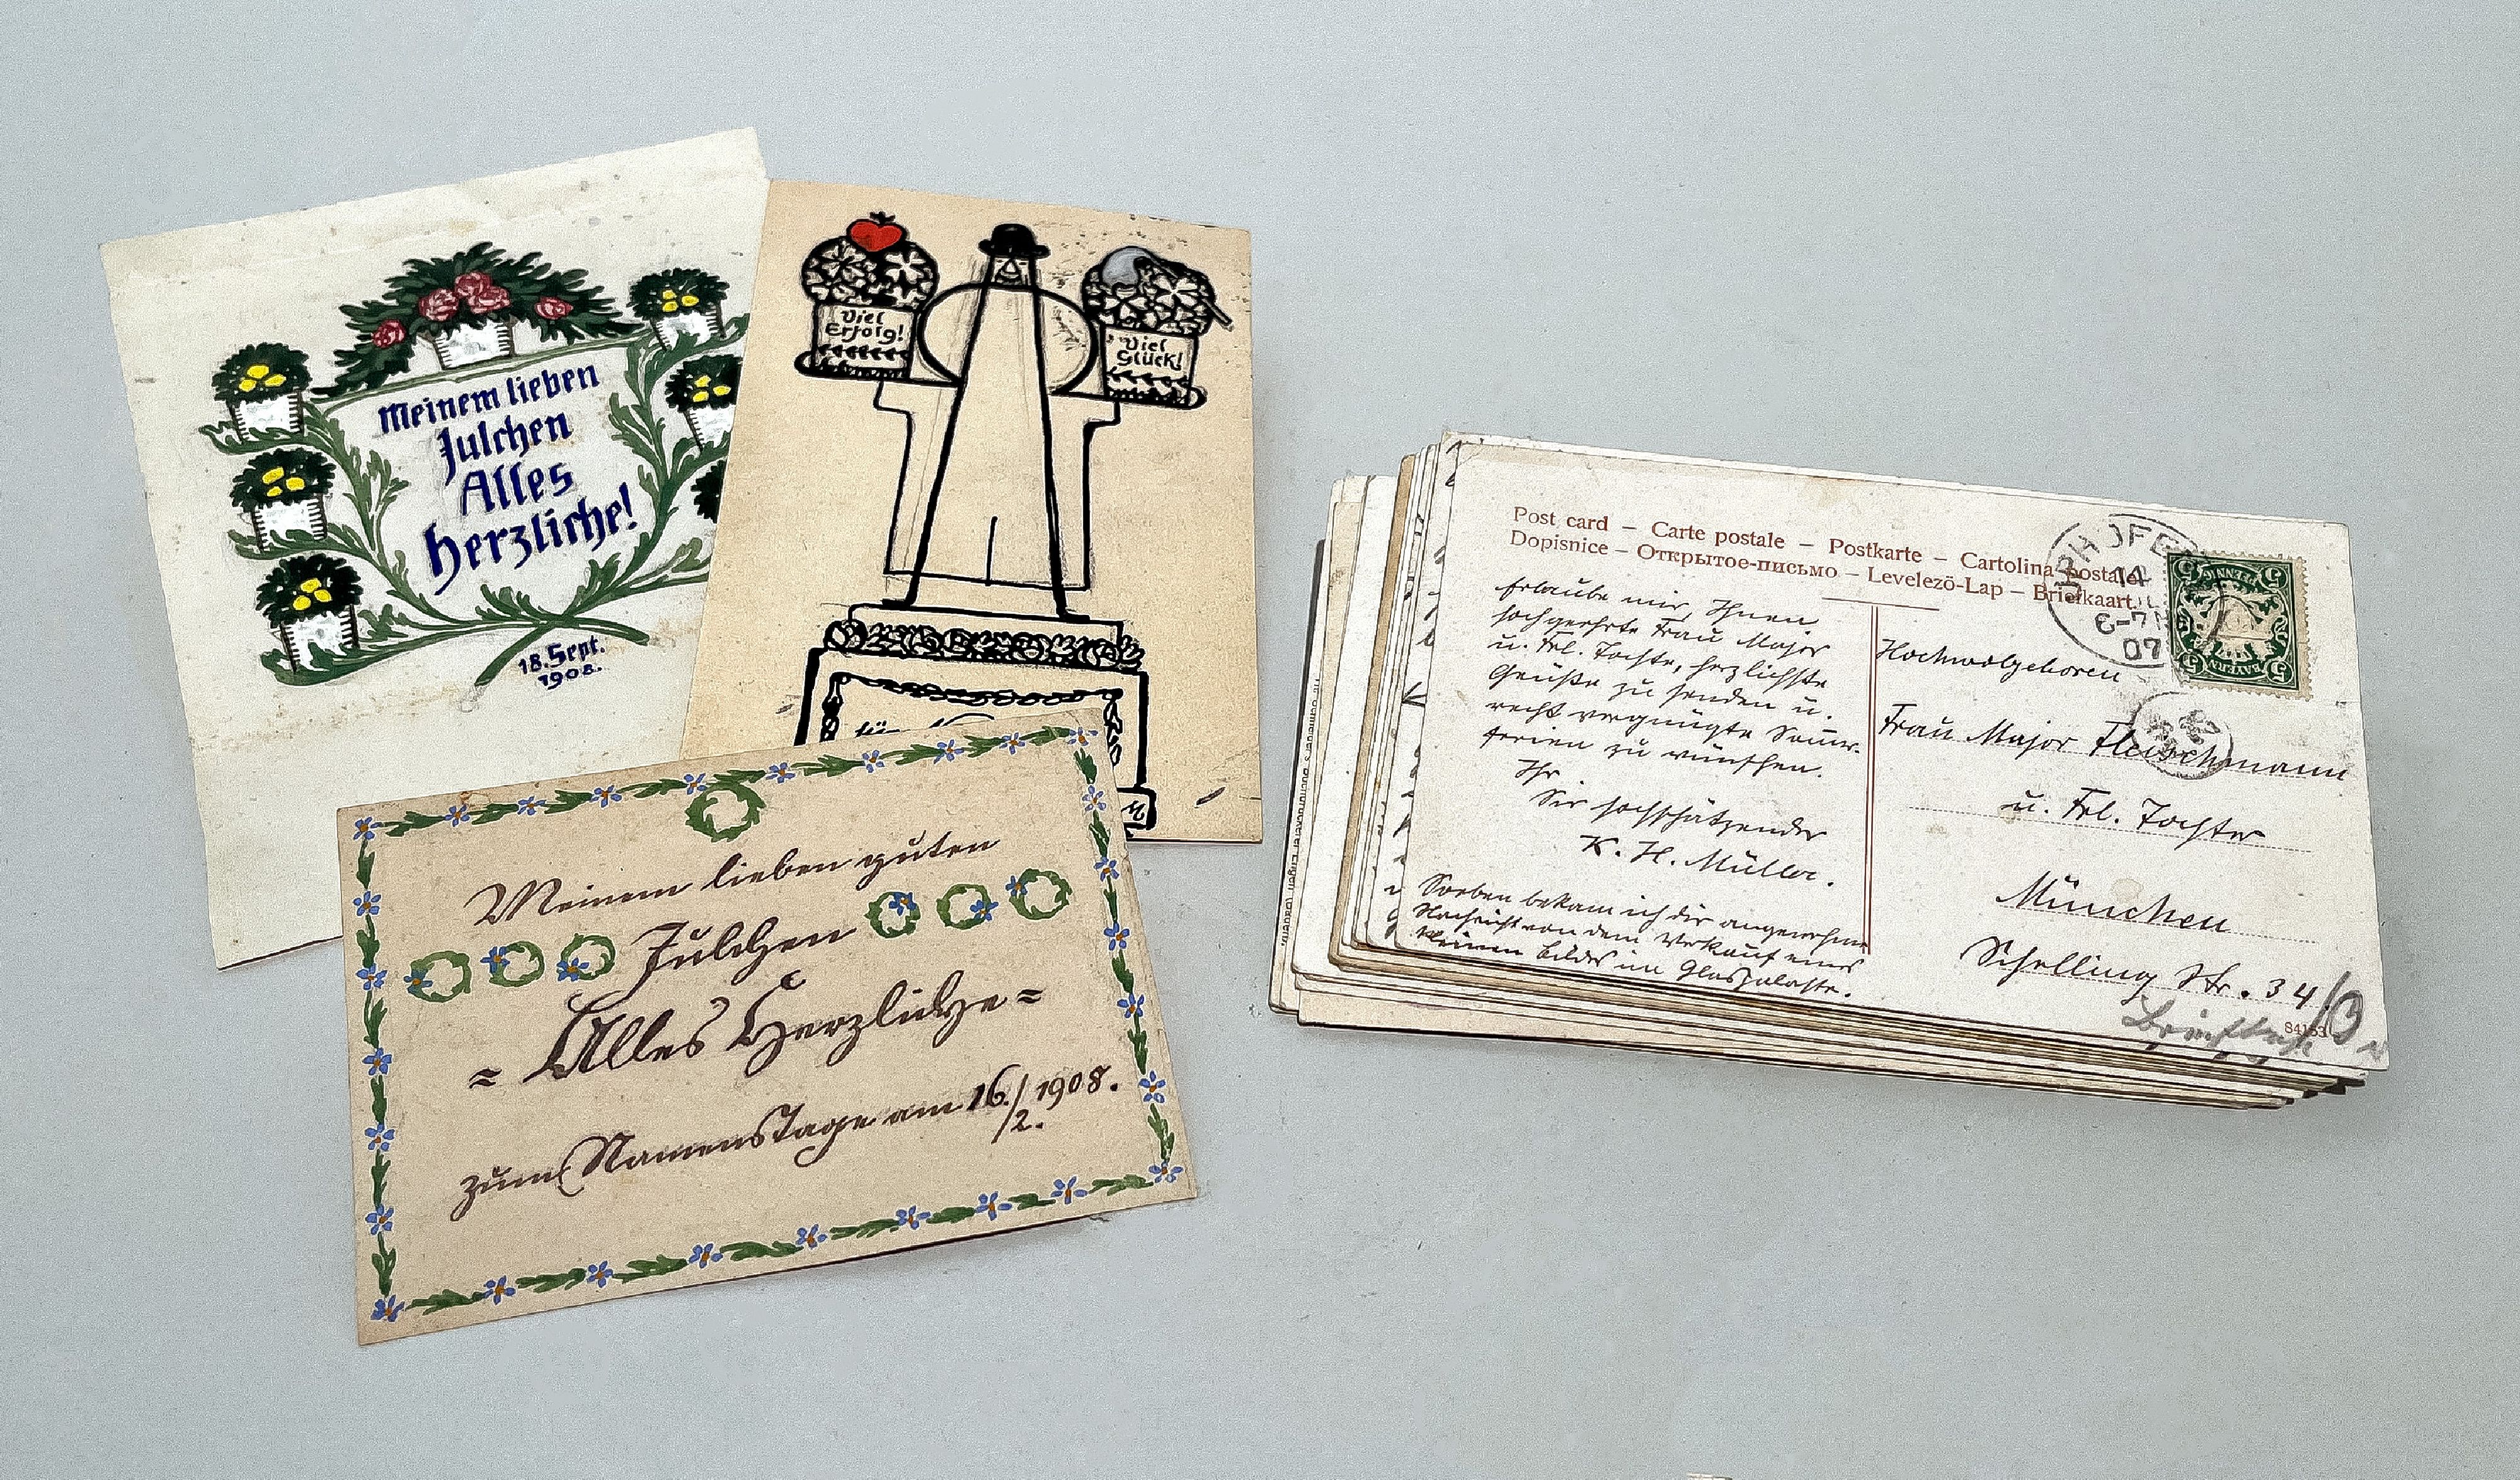 Meinem lieben
Julchen
Alles
herzliche!
18. Sept.
1908.
Viel
Erfolg!
Viel
Glück!
für
Meinem lieben guten
Julchen
= Alles Herzliche =
zum Namenstage am 16./2. 1908.
Post card – Carte postale – Postkarte – Cartolina postale
Dopisnice – Открытое-письмо – Levelező-Lap – Briefkaart.
Erlaube mir, Ihnen
hochgeehrte Frau Major
u. Frl. Tochter, herzlichste
Grüße zu senden u.
recht vergnügte Somer-
ferien zu wünschen.
Ihr
Sie hochschätzender
K. H. Müller.
Soeben bekam ich die angenehme
Nachricht von dem Verkauf eines
kleinen Bildes im Glaspalaste.
14
6-7
07
BAYERN
5 PFENNIG 5
Hochwolgeboren
Frau Major Fleischmann
u. Frl. Tochter
München
Schelling Str. 34/3
84153